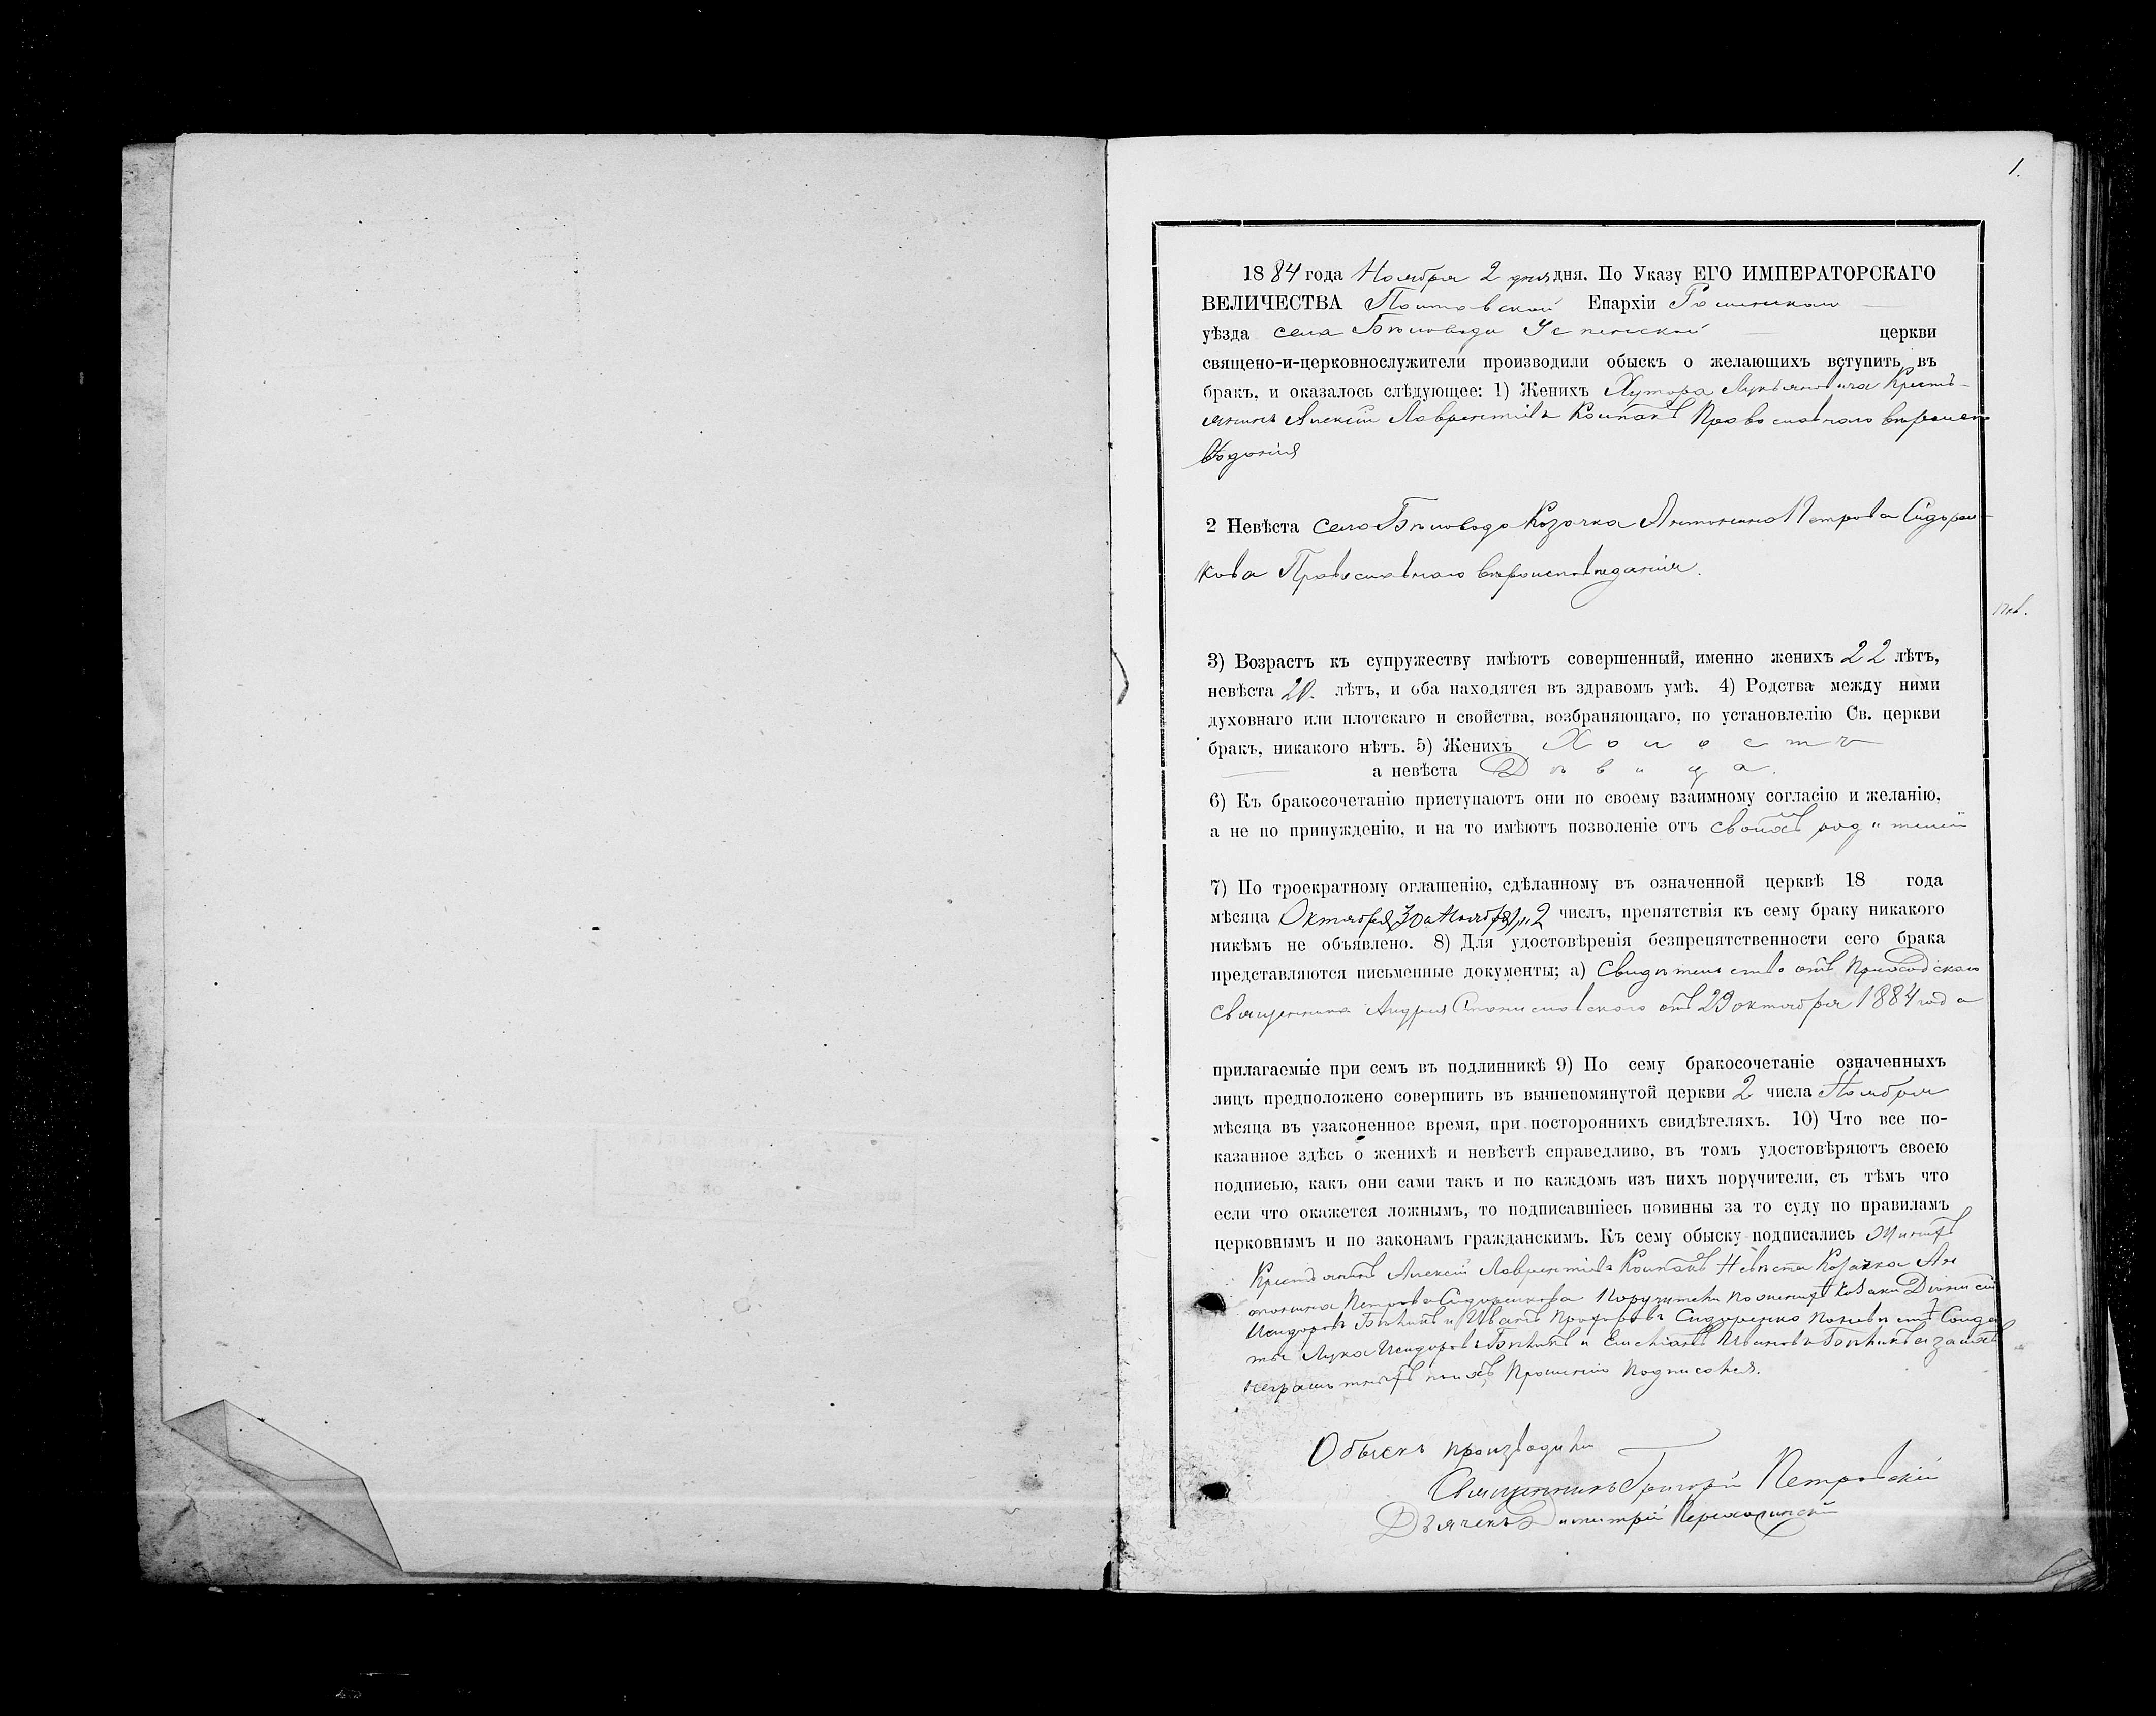 1.
1884 года Ноября 2 дня дня. По Указу ЕГО ИМПЕРАТОРСКАГО
ВЕЛИЧЕСТВА Полтавской Епархіи Роменскаго
уѣзда села Бѣловода Успенской церкви
священо-и-церковнослужители производили обыскъ о желающихъ вступить въ
бракъ, и оказалось слѣдующее: 1) Женихъ Хутора Кресть-
янинъ Алексій Лаврентіевъ Колпакъ Православнаго
2 Невѣста села Бѣловода Козачка Антонина Петрова Сидорен-
кова Православнаго вѣроисповѣданія.
3) Возрастъ къ супружеству имѣютъ совершенный, именно женихъ 22 лѣтъ,
невѣста 20. лѣтъ, и оба находятся въ здравомъ умѣ. 4) Родства между ними
духовнаго или плотскаго и свойства, возбраняющаго, по установлелію Св. церкви
бракъ, никакого нѣтъ. 5) Женихъ Холостъ
а невѣста Дѣвица.
6) Къ бракосочетанію приступаютъ они по своему взаимному согласію и желанію,
а не по принужденію, и на то имѣютъ позволеніе отъ своихъ родителей
7) По троекратному оглашенію, сдѣланному въ означенной церквѣ 18 года
мѣсяца Октября 30 а Ноября 1 и 2 числъ, препятствія къ сему браку никакого
никѣмъ не объявлено. 8) Для удостовѣренія безпрепятственности сего брака
представляются письменные документы; а) Свидѣтельство отъ Приходскаго
священника Андрея Станиславскаго отъ 29 октября 1884 года
прилагаемые при семъ въ подлинникѣ 9) По сему бракосочетаніе означенныхъ
лицъ предположено совершить въ вышепомянутой церкви 2 числа Ноября
мѣсяца въ узаконенное время, при постороннихъ свидѣтеляхъ. 10) Что все по-
казанное здѣсь о женихѣ и невѣстѣ справедливо, въ томъ удостовѣряютъ своею
подписью, какъ они сами такъ и по каждомъ изъ нихъ поручители, съ тѣмъ что
если что окажется ложнымъ, то подписавшіесь повинны за то суду по правиламъ
церковнымъ и по законамъ гражданскимъ. Къ сему обыску подписались
Крестьянинъ Алексій Лаврентіевъ Колпакъ Невѣста Козачка Ан
тонина Петрова Сидоренкова Поручители по женихѣ козаки Діонисій
Исидоровъ и Иванъ Сидоренко по невѣстѣ Солда
ты Лука Исидоровъ и Ивановъ
неграмотныхъ по ихъ прошенію подписался.
Обыскъ производили
Священникъ Григорій Петровскій
Дьячекъ Димитрій